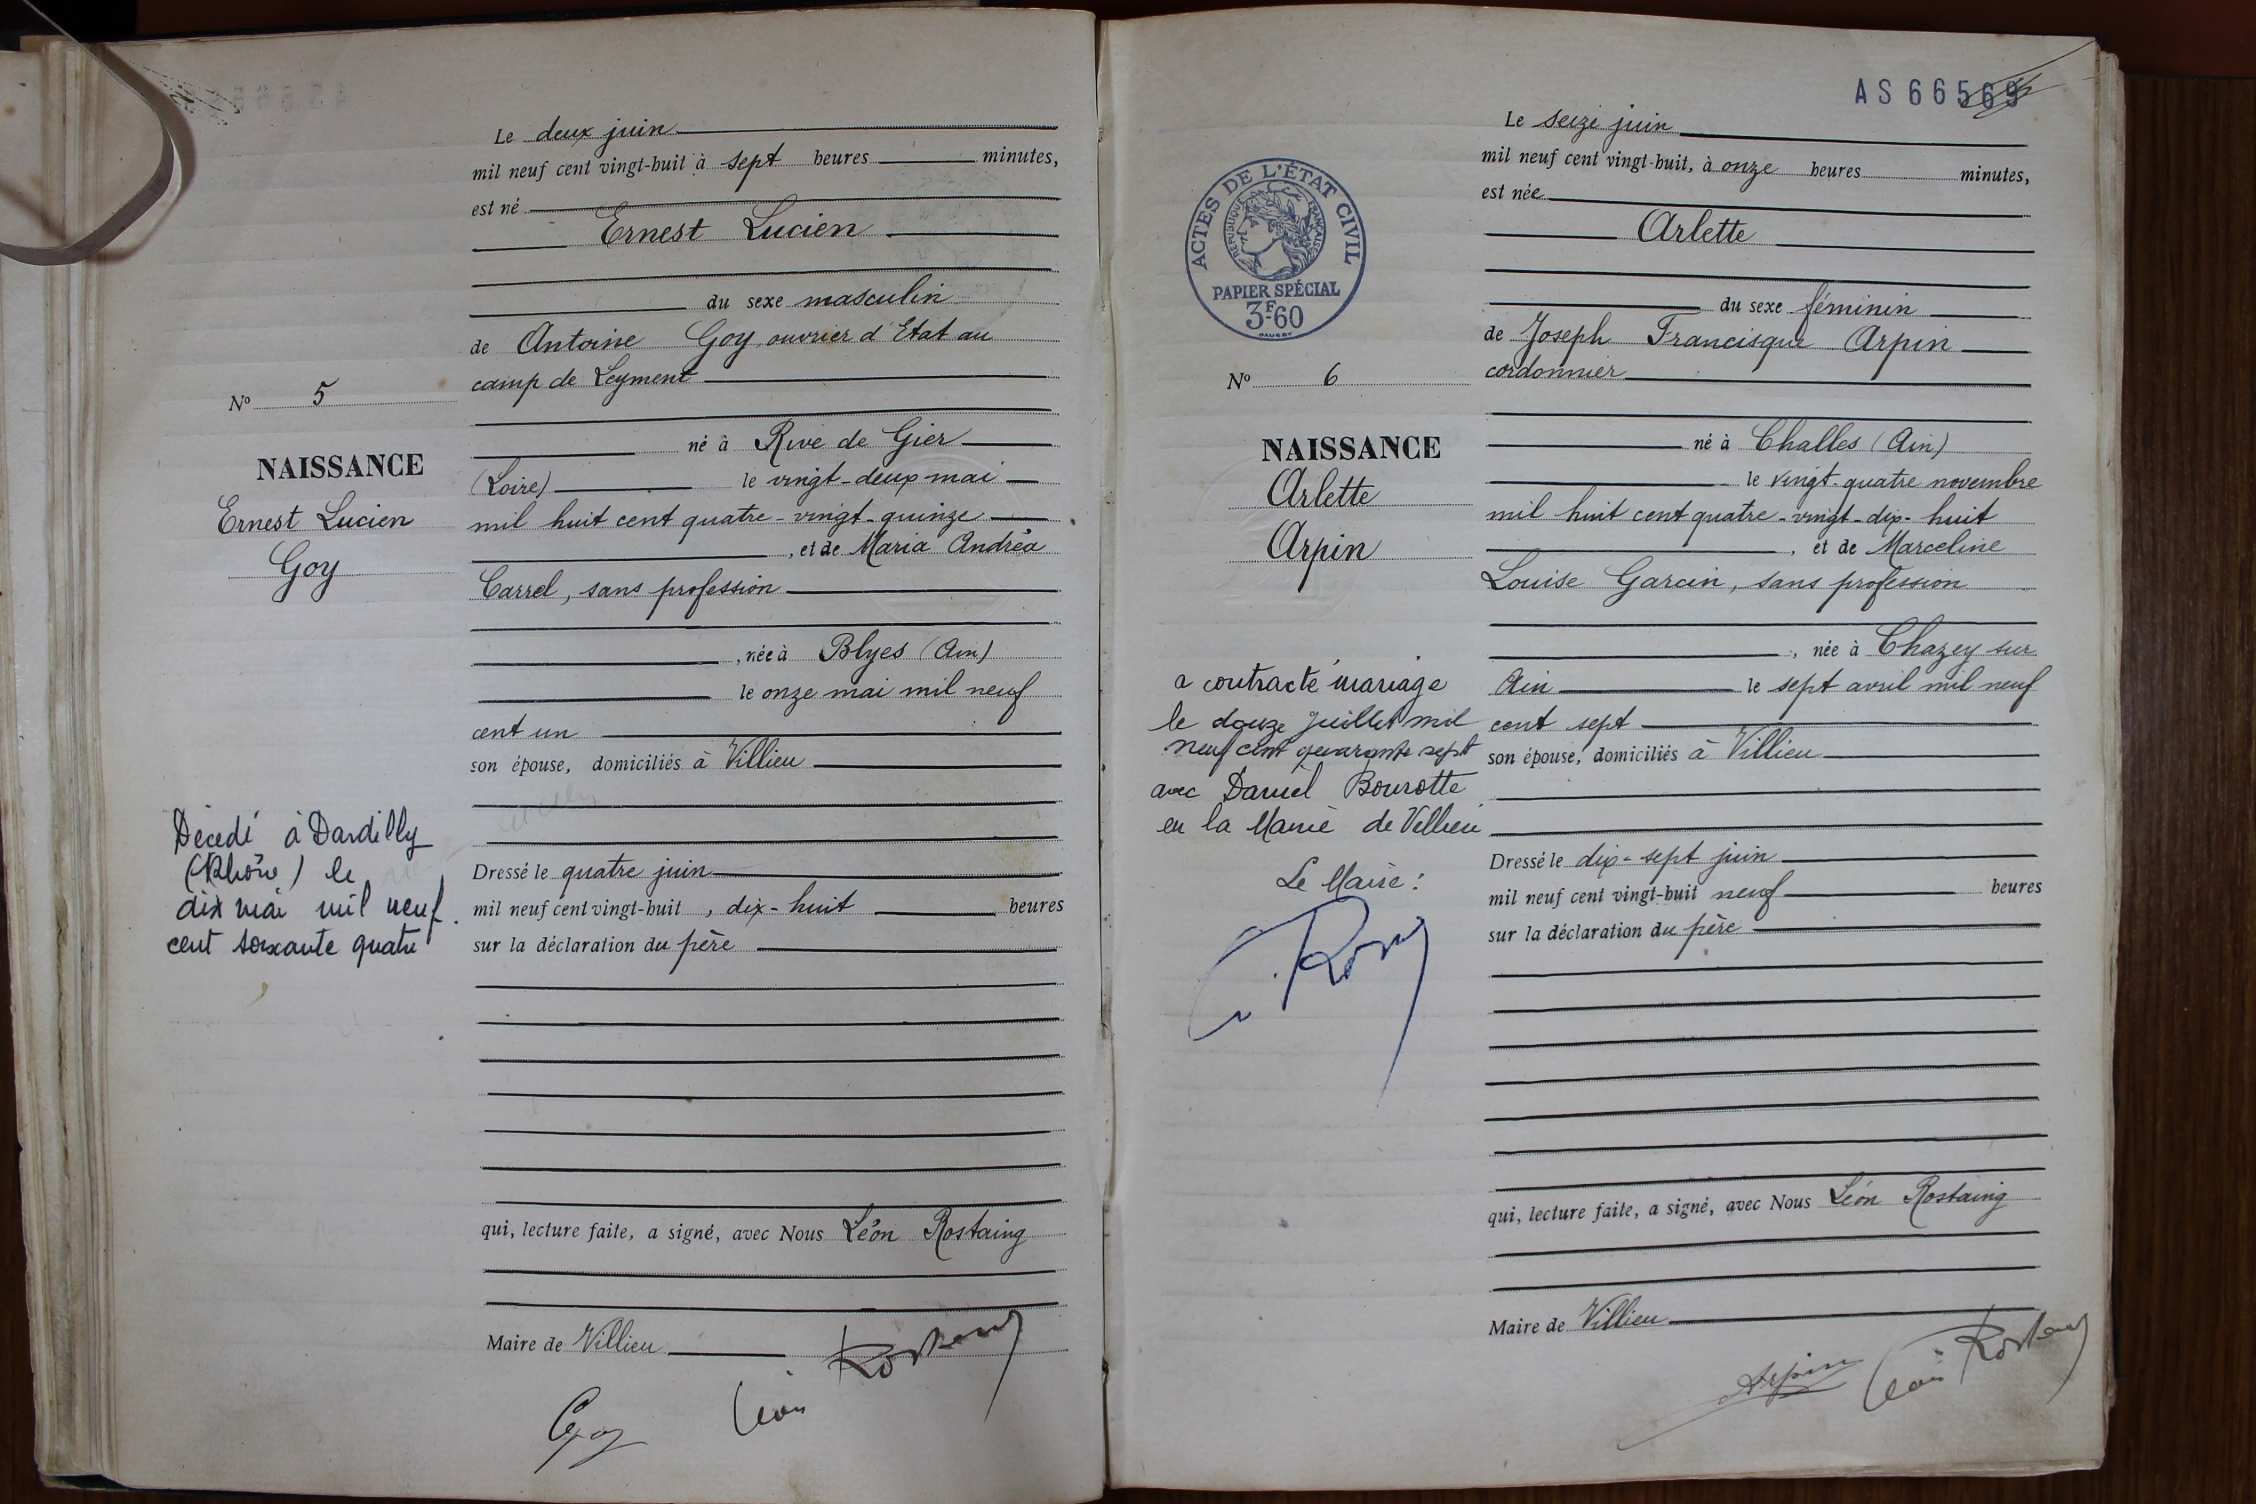 Le deux juin
mil neuf cent vingt-huit à sept heures minutes,
est né
Ernest Lucien
du sexe masculin
de Antoine Goy, ouvrier d'Etat au
camp de Leyment
né à Rive de Gier
(Loire) le vingt-deux mai
mil huit cent quatre-vingt-quinze
, et de Maria Andréa
Carrel, sans profession
, née à Blyes (Ain)
le onze mai mil neuf
cent un
son épouse, domiciliés à Villieu
Dressé le quatre juin
mil neuf cent vingt-huit, dix-huit heures
sur la déclaration du père
qui, lecture faite, a signé, avec Nous Léon Rostaing
Maire de Villieu
Goy Léon Rostaing
No 5
NAISSANCE
Ernest Lucien
Goy
Décédé à Dardilly
(Rhône) le
dix mai mil neuf
cent soixante quatre
AS 66569
Le seize juin
mil neuf cent vingt-huit, à onze heures minutes,
est née
Arlette
du sexe féminin
de Joseph Francisque Arpin
cordonnier
né à Challes (Ain)
le vingt-quatre novembre
mil huit cent quatre-vingt-dix-huit
, et de Marceline
Louise Garcin, sans profession
, née à Chazey sur
Ain le sept avril mil neuf
cent sept
son épouse, domiciliés à Villieu
Dressé le dix-sept juin
mil neuf cent vingt-huit neuf heures
sur la déclaration du père
qui, lecture faite, a signé, avec Nous Léon Rostaing
Maire de Villieu
Arpin Léon Rostaing
ACTES DE L'ÉTAT CIVIL
RÉPUBLIQUE FRANÇAISE
PAPIER SPÉCIAL
3F.60
No 6
NAISSANCE
Arlette
Arpin
a contracté mariage
le douze juillet mil
neuf cent quarante sept
avec Daniel Bourotte
en la Mairie de Villieu
Le Maire :